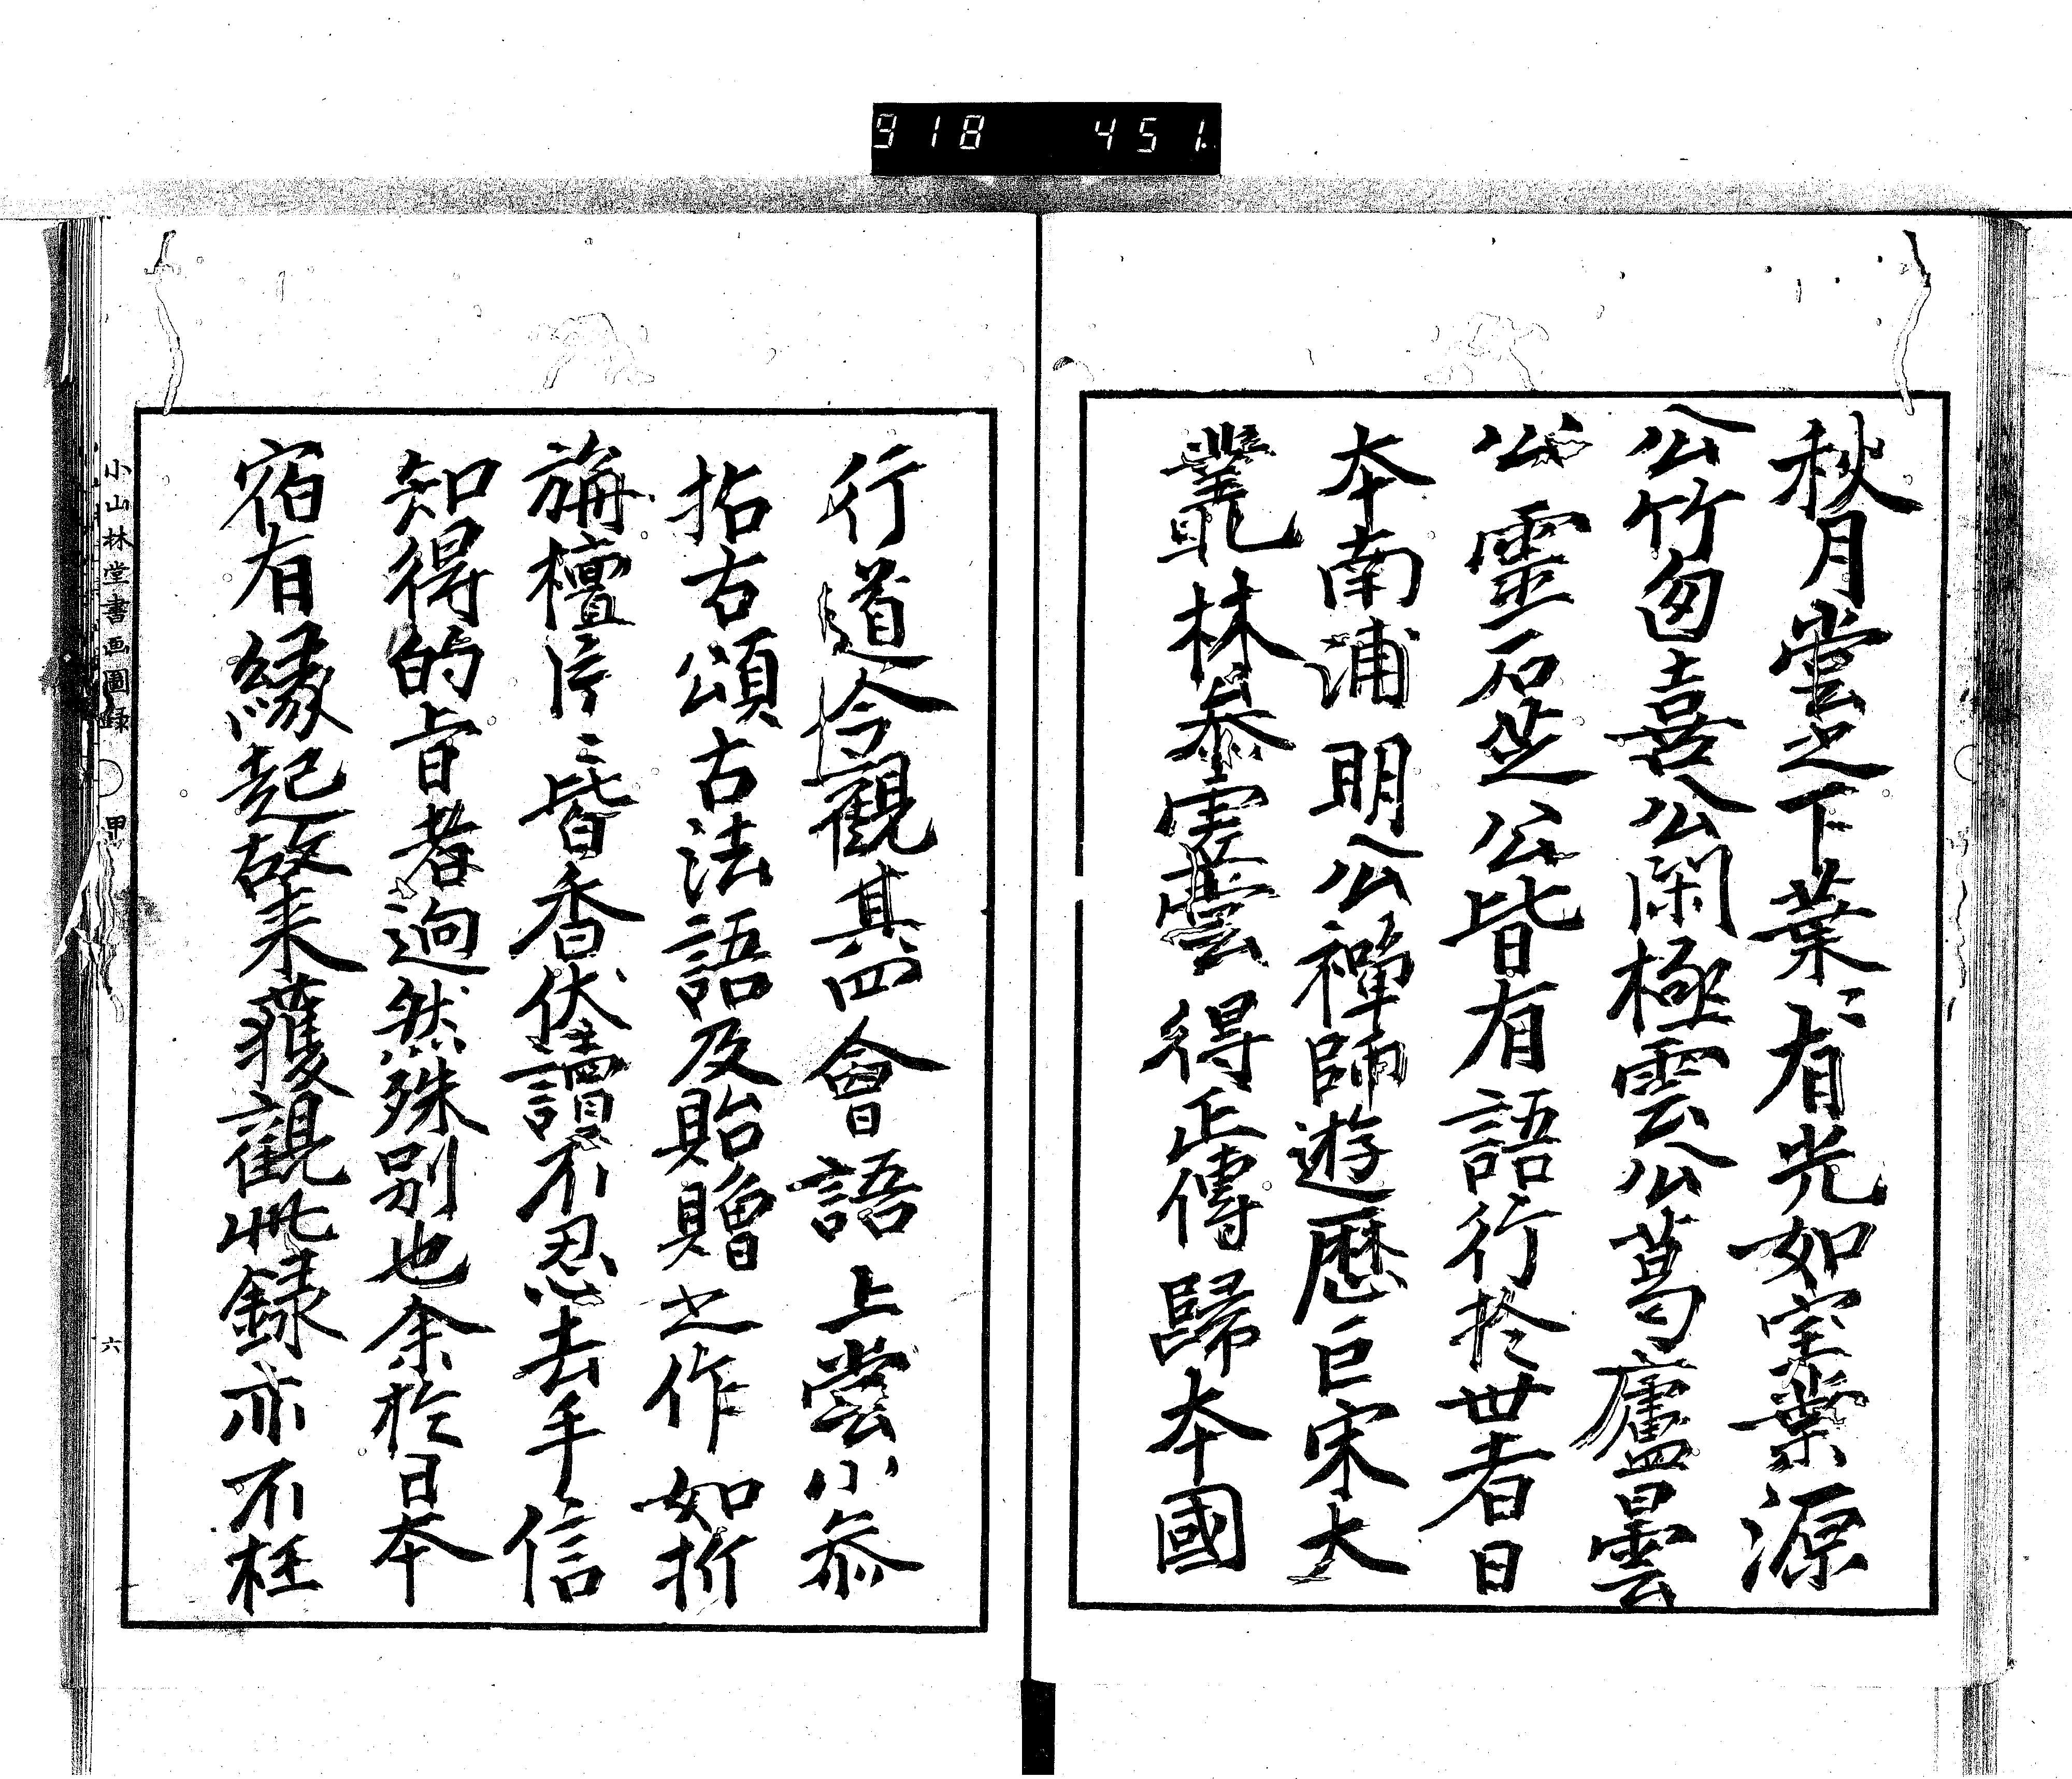 918 451
秋月堂之下葉〻有光如宝葉源
公竹匊喜公閑極雲公葛廬曇
公靈石芝公皆有語行於世者日
本南浦明公禅師遊歴巨宋大
叢林参虚雲得正傳歸本國
行道今觀其四會語上堂小参
拈古頌古法語及貽贈之作如折
旃檀片〻皆香伏讀不忍去手信
知得的旨者迥然殊别也余於日本
宿有縁起故来獲觀此録亦不枉
小山林堂書画圖録 甲 六